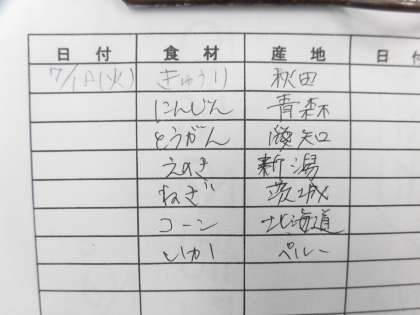 日付 食材 産地 日付
7/18(火) きゅうり 秋田
にんじん 青森
とうがん 愛知
えのき 新潟
ねぎ 茨城
コーン 北海道
いか ペルー